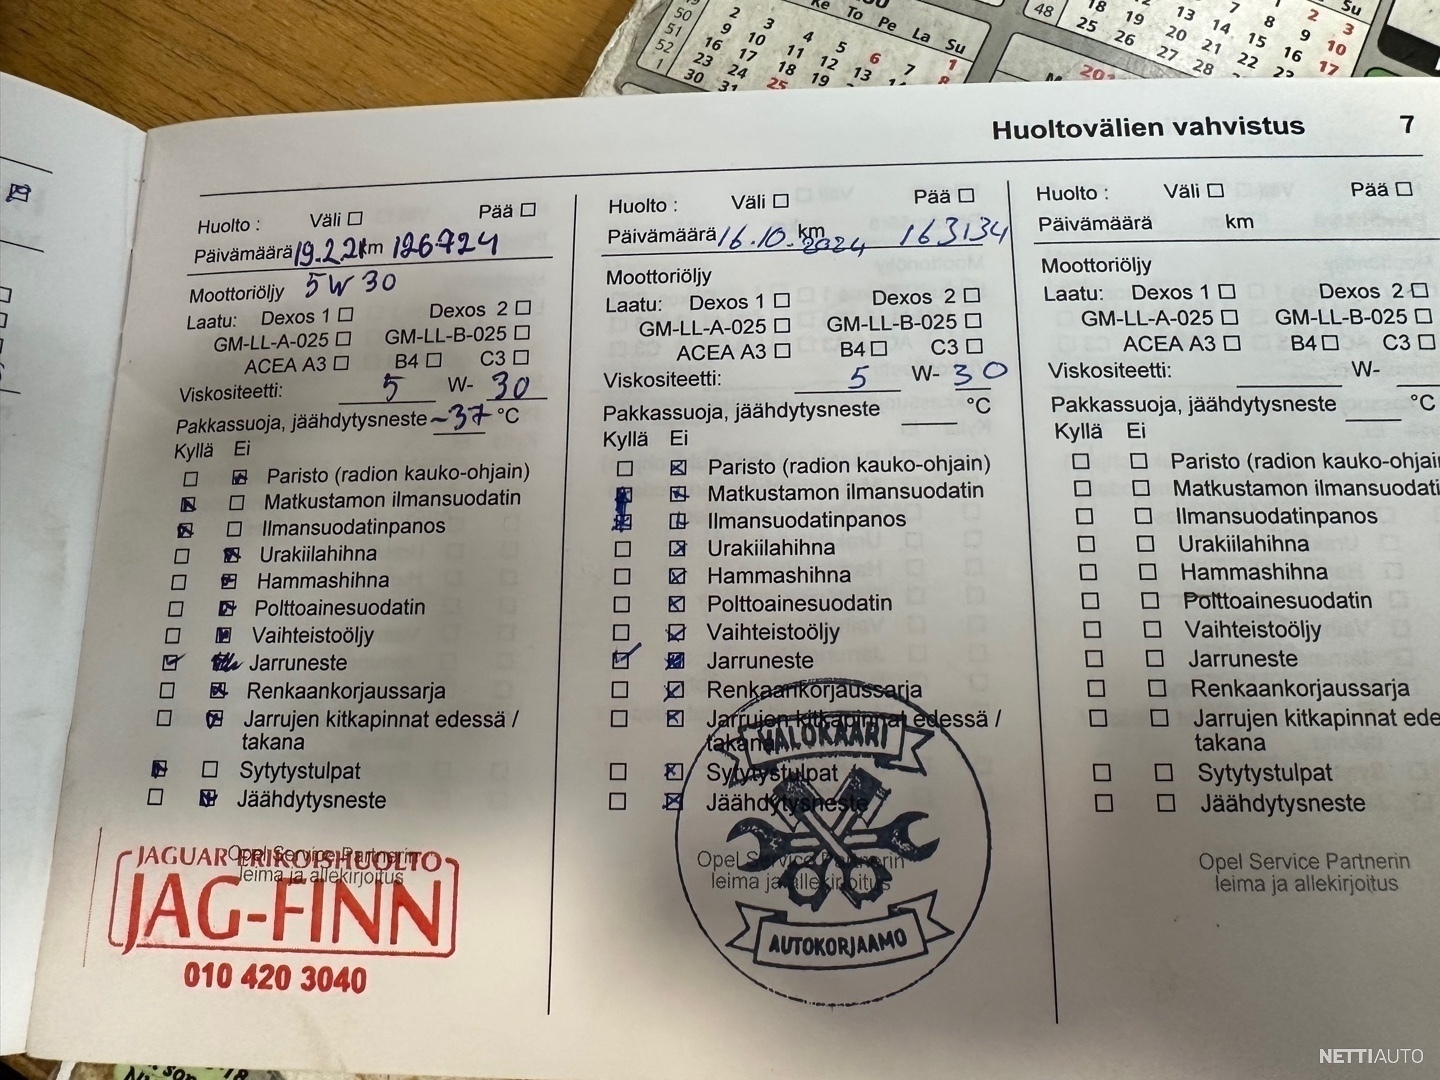 Ke To Pe La Su
50 2 3 4 5 6 7 1
51 9 10 11 12 13
52 16 17 18 19
1 23 24 25
30 31
48 18 19 20 21 22
25 26 27 28
Huoltovälien vahvistus 7
Huolto : Väli ☐ Pää ☐
Päivämäärä 19.2.21 km 126724
Moottoriöljy 5W30
Laatu: Dexos 1 ☐ Dexos 2 ☐
GM-LL-A-025 ☐ GM-LL-B-025 ☐
ACEA A3 ☐ B4 ☐ C3 ☐
Viskositeetti: 5 W- 30
Pakkassuoja, jäähdytysneste ~37 °C
Kyllä Ei
Paristo (radion kauko-ohjain)
Matkustamon ilmansuodatin
Ilmansuodatinpanos
Urakiilahihna
Hammashihna
Polttoainesuodatin
Vaihteistoöljy
Jarruneste
Renkaankorjaussarja
Jarrujen kitkapinnat edessä /
takana
Sytytystulpat
Jäähdytysneste
Opel Service Partnerin
leima ja allekirjoitus
JAGUAR ERIKOISHUOLTO
JAG-FINN
010 420 3040
Huolto : Väli ☐ Pää ☐
Päivämäärä 16.10.2024 km 163134
Moottoriöljy
Laatu: Dexos 1 ☐ Dexos 2 ☐
GM-LL-A-025 ☐ GM-LL-B-025 ☐
ACEA A3 ☐ B4 ☐ C3 ☐
Viskositeetti: 5 W- 30
Pakkassuoja, jäähdytysneste °C
Kyllä Ei
Paristo (radion kauko-ohjain)
Matkustamon ilmansuodatin
Ilmansuodatinpanos
Urakiilahihna
Hammashihna
Polttoainesuodatin
Vaihteistoöljy
Jarruneste
Renkaankorjaussarja
Jarrujen kitkapinnat edessä /
takana
Sytytystulpat
Jäähdytysneste
Opel Service Partnerin
leima ja allekirjoitus
VALOKAARI
AUTOKORJAAMO
Huolto : Väli ☐ Pää ☐
Päivämäärä km
Moottoriöljy
Laatu: Dexos 1 ☐ Dexos 2 ☐
GM-LL-A-025 ☐ GM-LL-B-025 ☐
ACEA A3 ☐ B4 ☐ C3 ☐
Viskositeetti: W-
Pakkassuoja, jäähdytysneste °C
Kyllä Ei
Paristo (radion kauko-ohjain
Matkustamon ilmansuodati
Ilmansuodatinpanos
Urakiilahihna
Hammashihna
Polttoainesuodatin
Vaihteistoöljy
Jarruneste
Renkaankorjaussarja
Jarrujen kitkapinnat ede
takana
Sytytystulpat
Jäähdytysneste
Opel Service Partnerin
leima ja allekirjoitus
NETTIAUTO